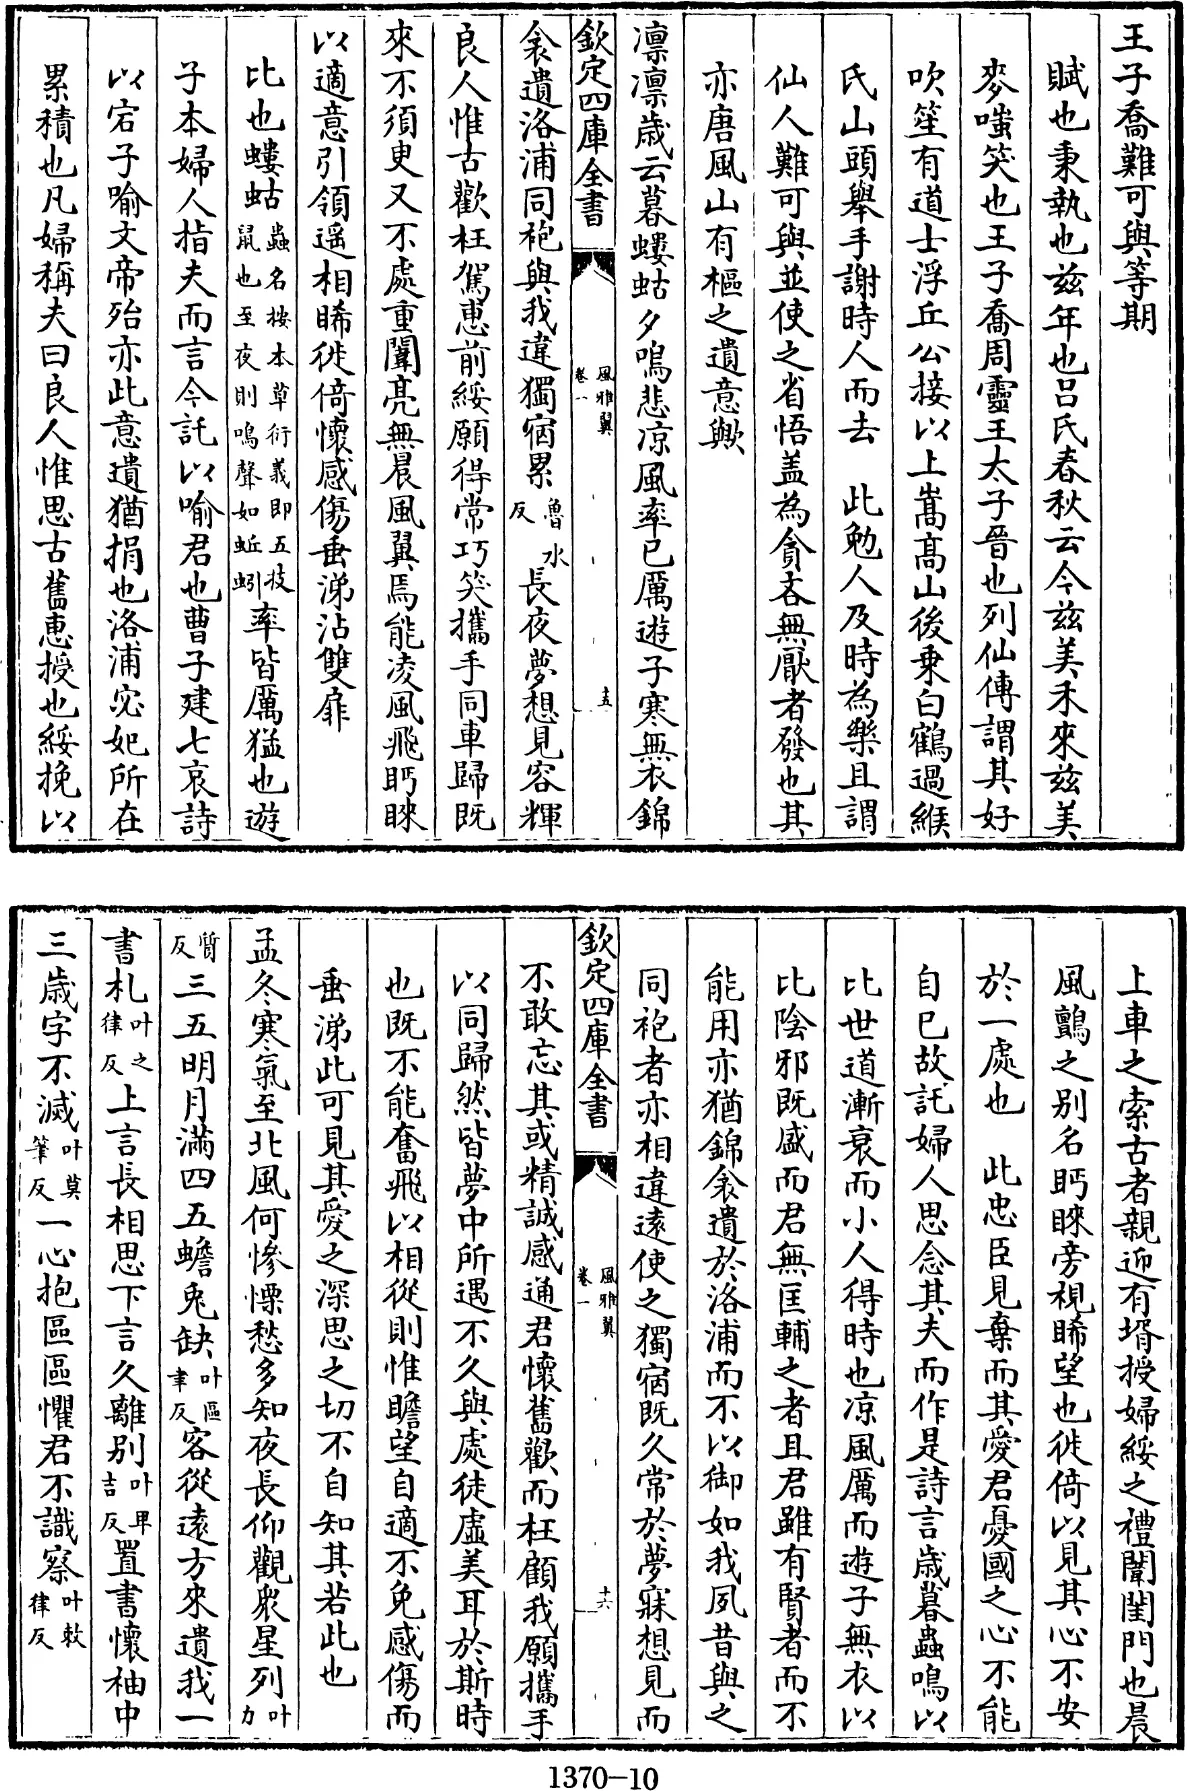 王子喬難可與等期
賦也秉執也兹年也吕氏春秋云今兹美禾來兹美
麥嗤笑也王子喬周靈王太子晉也列仙傳謂其好
吹笙有道士浮丘公接以上嵩髙山後乗白鶴過緱
氏山頭舉手謝時人而去 此勉人及時為樂且謂
仙人難可與並使之省悟盖為貪吝無厭者發也其
亦唐風山有樞之遺意歟
凛凛歳云暮螻蛄夕鳴悲凉風率已厲遊子寒無衣錦
欽定四庫全書 風雅翼 卷一 十五
衾遺洛浦同袍與我違獨宿累魯水反長夜夢想見容輝
良人惟古歡枉駕惠前綏願得常巧笑攜手同車歸既
來不須臾又不處重闈亮無晨風翼焉能凌風飛眄睞
以適意引領遥相睎徙倚懷感傷垂涕沾雙扉
比也螻蛄蟲名按本草衍義即五技鼠也至夜則鳴聲如蚯蚓率皆厲猛也遊
子本婦人指夫而言今託以喻君也曹子建七哀詩
以宕子喻文帝殆亦此意遺猶捐也洛浦宓妃所在
累積也凡婦稱夫曰良人惟思古舊惠授也綏挽以
上車之索古者親迎有壻授婦綏之禮闈閨門也晨
風鸇之别名眄睞旁視睎望也徙倚以見其心不安
於一處也 此忠臣見棄而其愛君憂國之心不能
自已故託婦人思念其夫而作是詩言歳暮蟲鳴以
比世道漸衰而小人得時也凉風厲而遊子無衣以
比陰邪既盛而君無匡輔之者且君雖有賢者而不
能用亦猶錦衾遺於洛浦而不以御如我夙昔與之
同袍者亦相違逺使之獨宿既久常於夢寐想見而
欽定四庫全書 風雅翼 卷一 十六
不敢忘其或精誠感通君懷舊歡而枉顧我願攜手
以同歸然皆夢中所遇不久與處徒虚美耳於斯時
也既不能奮飛以相從則惟瞻望自適不免感傷而
垂涕此可見其愛之深思之切不自知其若此也
孟冬寒氣至北風何慘慄愁多知夜長仰觀衆星列叶力
質反三五明月滿四五蟾兔缺叶區聿反客從逺方來遺我一
書札叶之律反上言長相思下言久離别叶畀吉反置書懷袖中
三歳字不滅叶莫筆反一心抱區區懼君不識察叶敕律反
1370-10